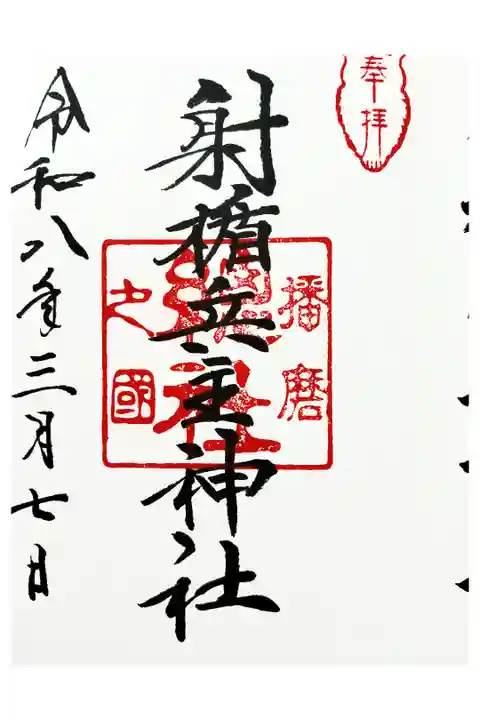 奉拝
射楯兵主神社
播磨
之國
令和八年三月七日